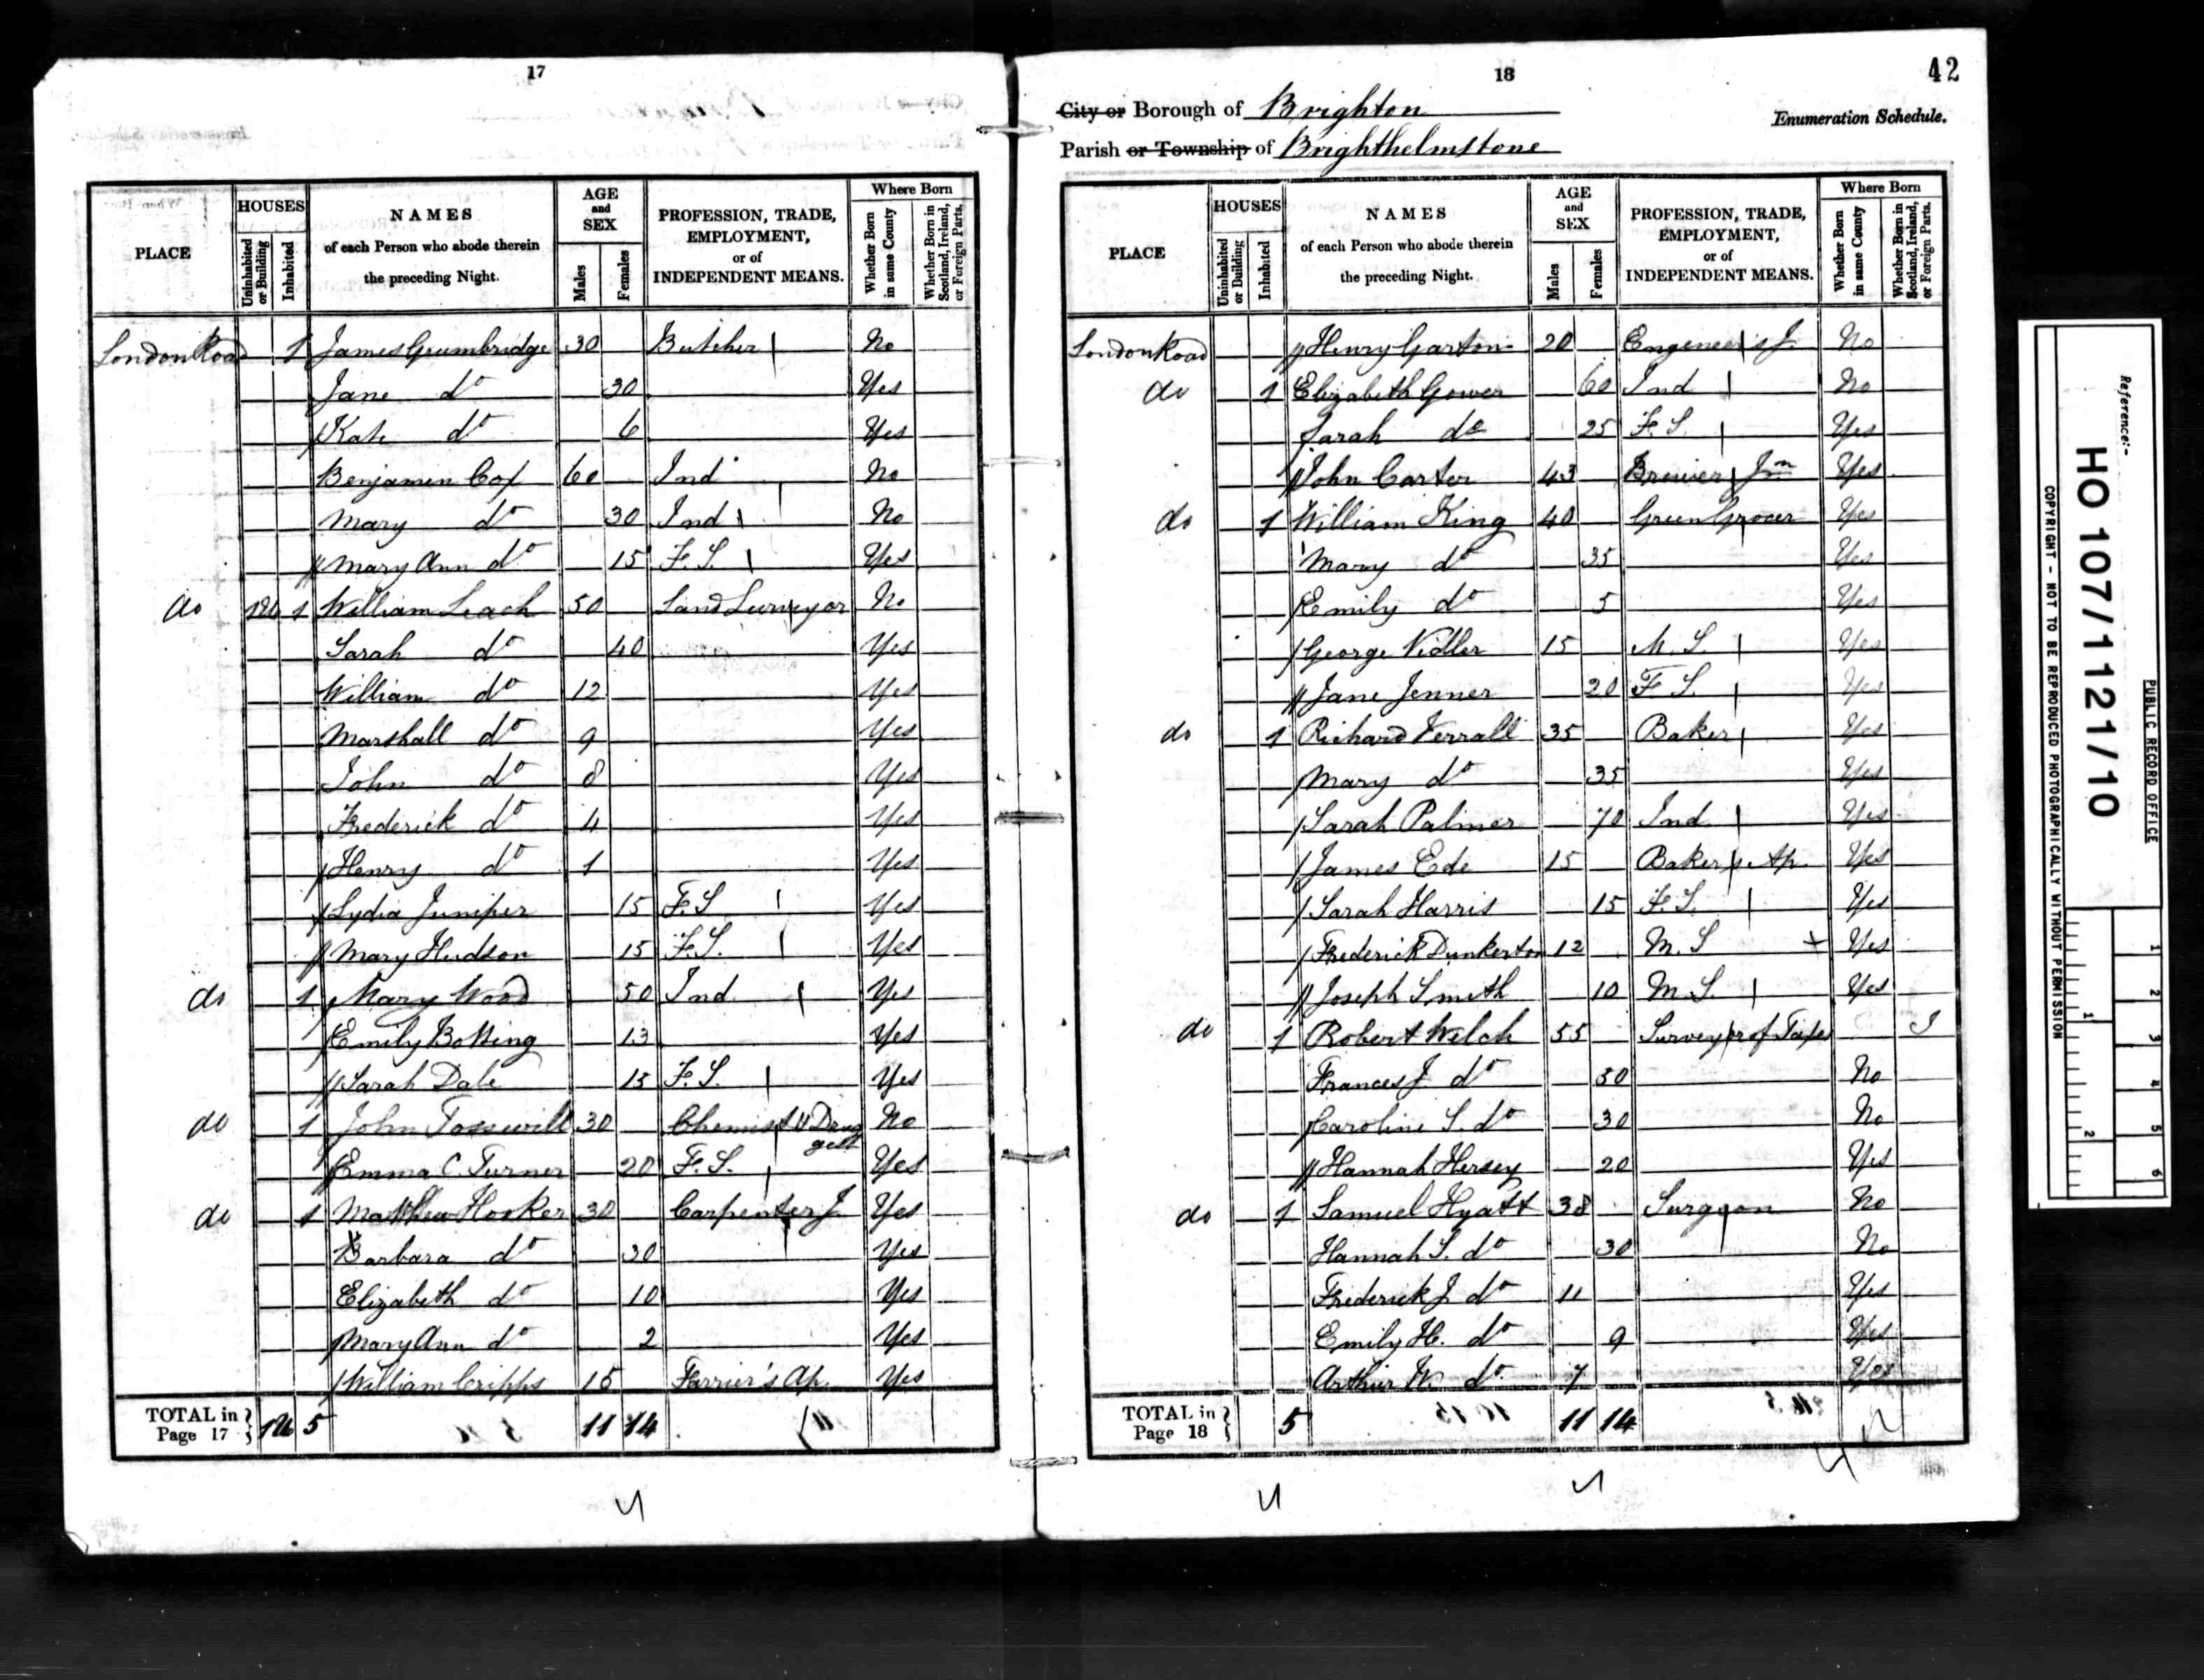 17
PLACE
HOUSES
Uninhabited or Building
Inhabited
NAMES
of each Person who abode therein
the preceding Night.
AGE
and
SEX
Males
Females
PROFESSION, TRADE,
EMPLOYMENT,
or of
INDEPENDENT MEANS.
Where Born
Whether Born in same County
Whether Born in Scotland, Ireland, or Foreign Parts.
London Road 1 James Grumbridge 30 Butcher No
Jane do 30 Yes
Kate do 6 Yes
Benjamin Cox 60 Ind No
Mary do 30 Ind No
Mary Ann do 15 F. S. Yes
do 1 William Leach 50 Land Surveyor No
Sarah do 40 Yes
William do 12 Yes
Marshall do 9 Yes
John do 8 Yes
Frederick do 4 Yes
Henry do 1 Yes
Lydia Juniper 15 F. S. Yes
Mary Hudson 15 F. S. Yes
do 1 Mary Wood 50 Ind Yes
Emily Botting 13 Yes
Sarah Dale 15 F. S. Yes
do 1 John Tosswill 30 Chemist & Druggist No
Emma C. Turner 20 F. S. Yes
do 1 Matthew Hooker 30 Carpenter J Yes
Barbara do 30 Yes
Elizabeth do 10 Yes
Mary Ann do 2 Yes
William Cripps 15 Farrier's Ap. Yes
TOTAL in Page 17 5 11 14
18
42
City or Borough of Brighton
Enumeration Schedule.
Parish or Township of Brighthelmstone
PLACE
HOUSES
Uninhabited or Building
Inhabited
NAMES
of each Person who abode therein
the preceding Night.
AGE
and
SEX
Males
Females
PROFESSION, TRADE,
EMPLOYMENT,
or of
INDEPENDENT MEANS.
Where Born
Whether Born in same County
Whether Born in Scotland, Ireland, or Foreign Parts.
London Road Henry Garton 20 Engeneer's J. No
do 1 Elizabeth Gower 60 Ind No
Sarah do 25 F. S. Yes
John Carter 43 Brewer Jm Yes
do 1 William King 40 Green Grocer Yes
Mary do 35 Yes
Emily do 5 Yes
George Vidler 15 M. S. Yes
Jane Jenner 20 F. S. Yes
do 1 Richard Verrall 35 Baker Yes
Mary do 35 Yes
Sarah Palmer 70 Ind Yes
James Ede 15 Baker Ap. Yes
Sarah Harris 15 F. S. Yes
Frederick Dunkerton 12 M. S Yes
Joseph Smith 10 M. S. Yes
do 1 Robert Welch 55 Surveyor of Taxes I
Frances J do 50 No
Caroline S. do 30 No
Hannah Hersey 20 Yes
do 1 Samuel Hyatt 38 Surgeon No
Hannah S. do 30 No
Frederick J. do 11 Yes
Emily H. do 9 Yes
Arthur W. do 7 Yes
TOTAL in Page 18 5 11 14
PUBLIC RECORD OFFICE
Reference:-
HO 107/1121/10
COPYRIGHT - NOT TO BE REPRODUCED PHOTOGRAPHICALLY WITHOUT PERMISSION
1 2 3 4 5 6
1 2